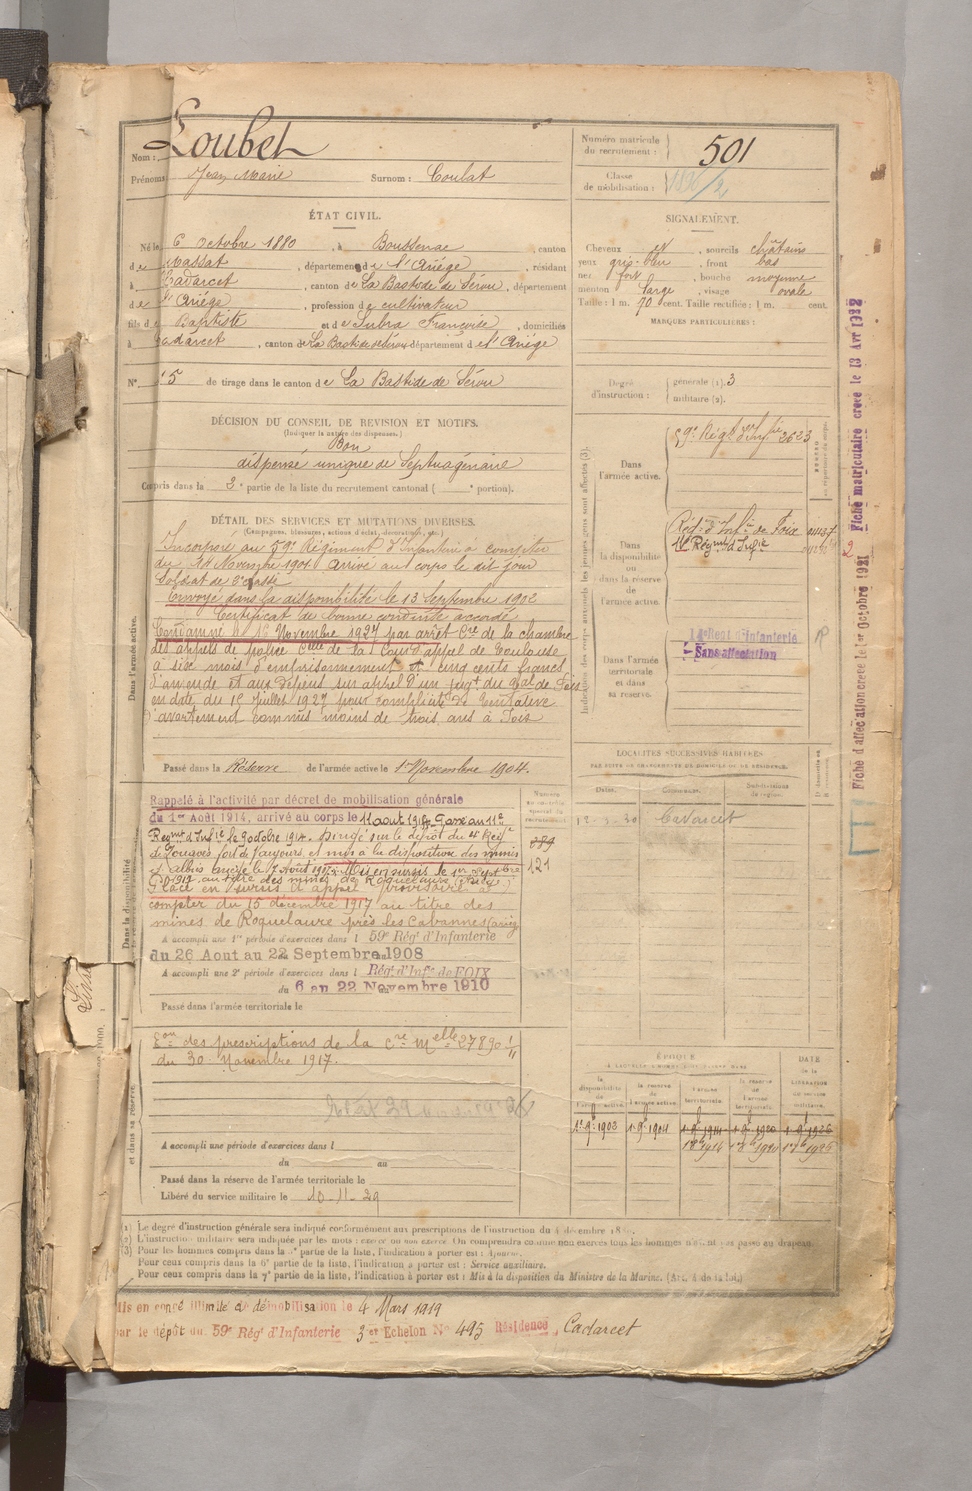 Nom : Loubet
Prénoms Jean Marie Surnom : Coulat
Numéro matricule du recrutement : 501
Classe de mobilisation :
ÉTAT CIVIL.
Né le 6 Octobre 1880, à Boussenac, canton
de Massat, département de l'Ariège, résidant
à Cadarcet, canton de La Bastide de Sérou, département
de l'Ariège, profession de cultivateur
fils de Baptiste et de Subra Françoise, domiciliés
à Cadarcet, canton de La Bastide de Sérou département de l'Ariège
N° 15 de tirage dans le canton de La Bastide de Sérou
SIGNALEMENT.
Cheveux et, sourcils châtains
yeux gris-bleu, front bas
nez fort, bouche moyenne
menton large, visage ovale
Taille : 1 m. 70 cent. Taille rectifiée : 1 m. cent.
MARQUES PARTICULIÈRES :
Degré d'instruction : générale (1). 3
militaire (2).
DÉCISION DU CONSEIL DE REVISION ET MOTIFS.
(Indiquer la nature des dispenses.)
Bon
dispensé unique de Septuagénaire
Compris dans la 2e partie de la liste du recrutement cantonal ( e portion).
DÉTAIL DES SERVICES ET MUTATIONS DIVERSES.
(Campagnes, blessures, actions d'éclat, décorations, etc.)
Dans l'armée active.
Incorporé au 59e Régiment d'Infanterie à compter
du 14 Novembre 1901 arrivé au corps le dit jour
Soldat de 2e classe
Envoyé dans la disponibilité le 13 Septembre 1902
Certificat de bonne conduite accordé
Condamné le 16 Novembre 1927 par arrêt Cre de la chambre
des appels de police Clle de la Cour d'appel de Toulouse
à six mois d'emprisonnement et cinq cents francs
d'amende et aux dépens sur appel d'un jugt du Tal de Foix
en date du 1er Juillet 1927 pour complicité de tentative
d'avortement commis moins de trois ans à Foix
Passé dans la Réserve de l'armée active le 1er Novembre 1904.
Rappelé à l'activité par décret de mobilisation générale
du 1er Août 1914, arrivé au corps le 11 août 1914. Passé au 11e
Regimt d'Infie le 9 octobre 1914. dirigé sur le dépôt du 4e Regt
de Zouaves fort de Fanjours, et mis à la disposition des mines
d'Albi le 7 Août 1917. Mis en sursis le 1er Septbre
1917 au titre des mines de Roquelaure (Ariège)
Placé en sursis d'appel provisoire à
compter du 15 décembre 1917 au titre des
mines de Roquelaure près les Cabannes (Ariège
A accompli une 1re période d'exercices dans l 59e Rég' d'Infanterie
du 26 Aout au 22 Septembre 1908
A accompli une 2e période d'exercices dans l Rég' d'Infie de FOIX
du 6 au 22 Novembre 1910
Passé dans l'armée territoriale le
384
121
des prescriptions de la Cre Melle 27890 1/11
du 30 Novembre 1917.
A accompli une période d'exercices dans l
du au
Passé dans la réserve de l'armée territoriale le
Libéré du service militaire le 10-11-29
Indication des corps auxquels les jeunes gens sont affectés (3).
Dans l'armée active.
59e Régt d'Infie 2623
Dans la disponibilité ou dans la réserve de l'armée active.
Régt d'Infie de Foix
11e Regmt d'Infie
Dans l'armée territoriale et dans sa réserve.
Régt d'Infanterie
Sans affectation
LOCALITÉS SUCCESSIVES HABITÉES
PAR SUITE DE CHANGEMENTS DE DOMICILE OU DE RÉSIDENCE.
Dates. Communes. Subdivisions de région.
12-3-30 Cadarcet
ÉPOQUE
DATE de la LIBÉRATION du service militaire.
la disponibilité de l'armée active. la réserve de l'armée active. l'armée territoriale. la réserve de l'armée territoriale.
1er 9b 1903 1er 9b 1904 1er 9b 1914 1er 9b 1920 1er 9b 1926
Fiche d'affectation créée le 1er Octobre 1921 Fiche matriculaire créée le 13 Avr 1922
(1) Le degré d'instruction générale sera indiqué conformément aux prescriptions de l'instruction du 4 décembre
(2) L'instruction militaire sera indiquée par les mots : exercé ou non exercé. On comprendra comme non exercés tous les hommes n'étant pas passé au drapeau.
(3) Pour les hommes compris dans la partie de la liste, l'indication à porter est : Ajourné.
Pour ceux compris dans la 6e partie de la liste, l'indication à porter est : Service auxiliaire.
Pour ceux compris dans la 7e partie de la liste, l'indication à porter est : Mis à la disposition du Ministre de la Marine. (Art. 4 de la loi.)
Mis en congé illimité de démobilisation le 4 Mars 1919
par le dépôt du 59e Rég' d'Infanterie 3e Echelon N° 495 Résidence, Cadarcet